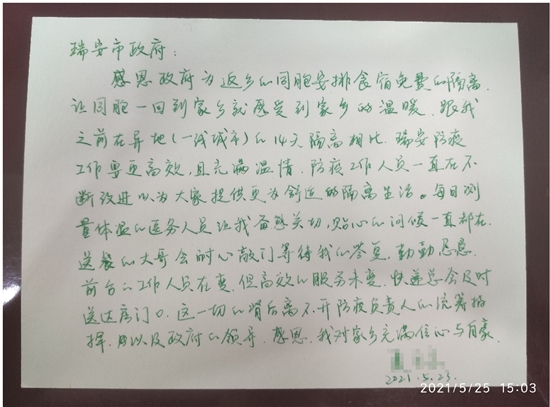 瑞安市政府：
感恩政府为返乡的同胞安排食宿免费的隔离
让同胞一回到家乡就感受到家乡的温暖. 跟我
之前在异地(一线城市)的14天隔离相比. 瑞安防疫
工作更高效, 且充满温情. 防疫工作人员一直在不
断改进以为大家提供更为舒适的隔离生活。每日测
量体温的医务人员让我备感关切, 贴心的问候一直都在.
送餐的大哥会耐心敲门等待我的答复, 勤勤恳恳.
前台的工作人员在变, 但高效的服务未变. 快递总会及时
送达房门口. 这一切的背后离不开防疫负责人的统筹指
挥, 以及政府的领导. 感恩. 我对家乡充满信心与自豪.
2021.5.23.
2021/5/25 15:03